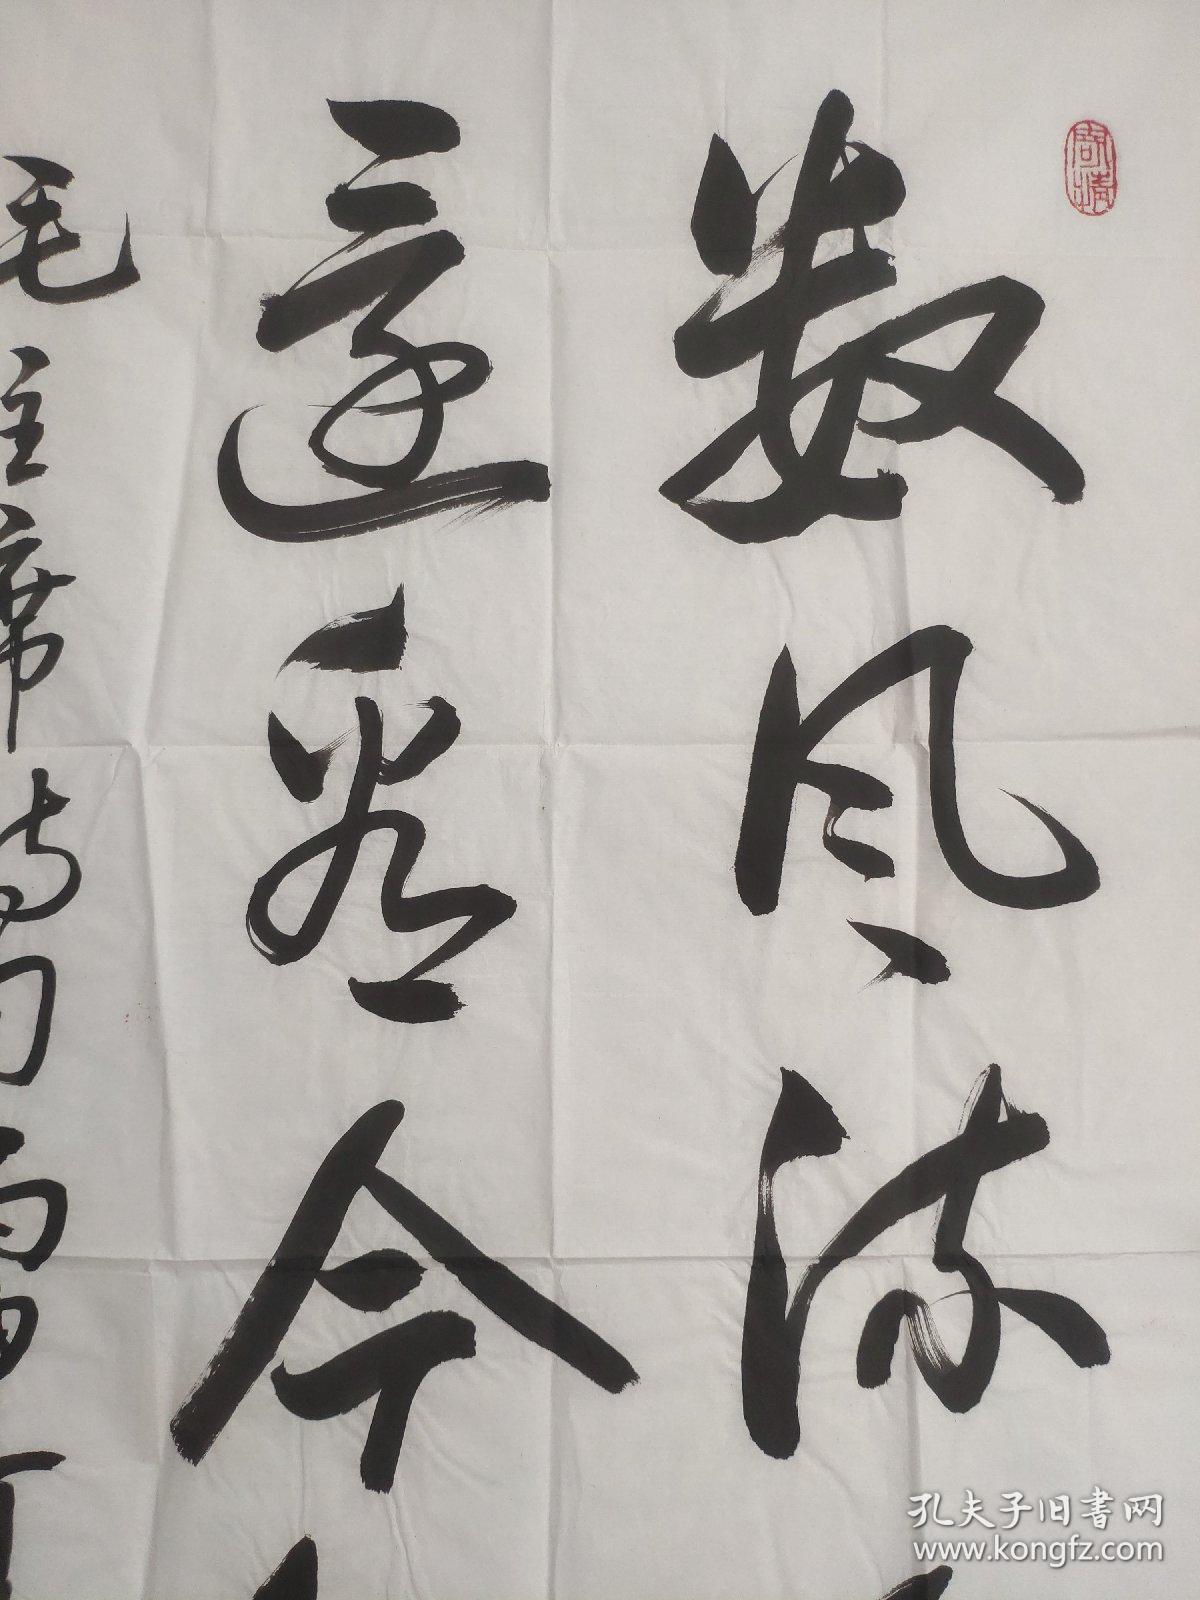 数风流
还看今
毛主席诗句
孔夫子旧书网
www.kongfz.com